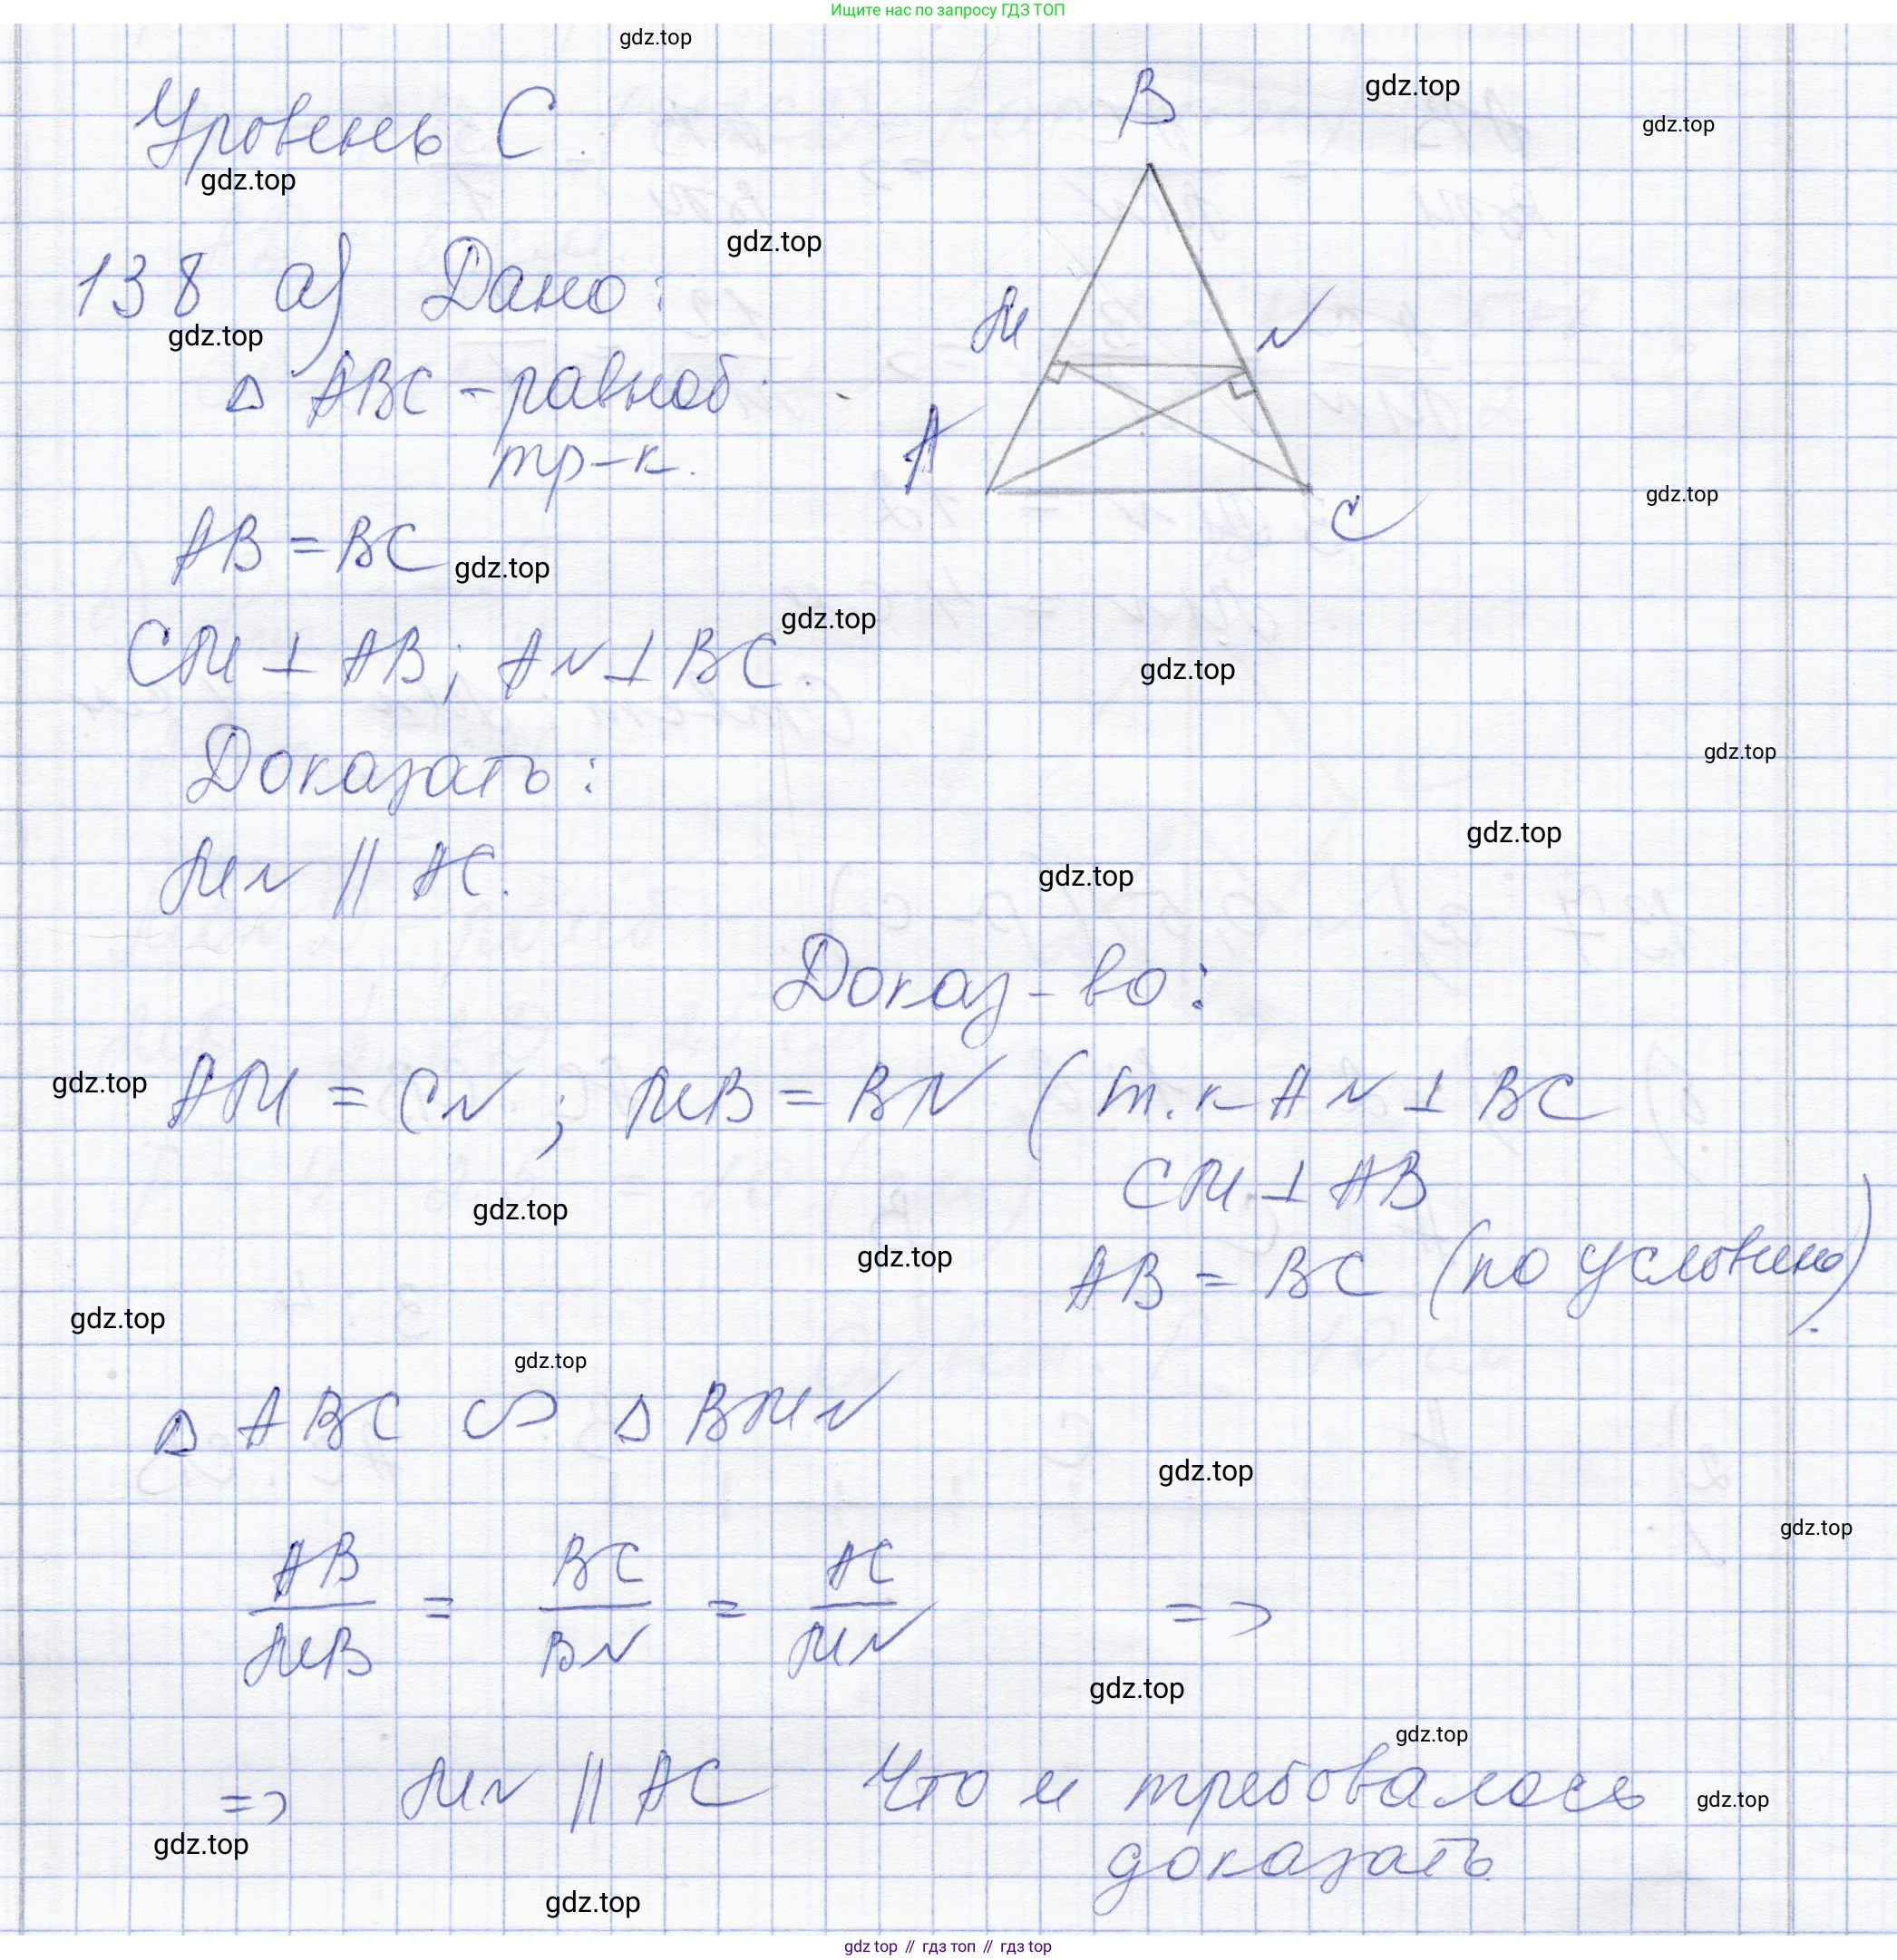 Ищите нас по запросу ГДЗ ТОП
gdz.top
Уровень С.
gdz.top
B
gdz.top
gdz.top
138 а) Дано:
gdz.top
gdz.top
M
N
△ ABC - равноб.
тр-к.
A
C
gdz.top
AB = BC
gdz.top
gdz.top
CM ⊥ AB; AN ⊥ BC.
gdz.top
Доказать:
gdz.top
gdz.top
MN || AC.
gdz.top
Доказ-во:
gdz.top
AM = CN; MB = BN (т.к AN ⊥ BC
CM ⊥ AB
gdz.top
gdz.top
AB = BC (по условию)
gdz.top
gdz.top
△ ABC ∽ △ BMN
gdz.top
gdz.top
AB/MB = BC/BN = AC/MN =>
gdz.top
gdz.top
=> MN || AC Что и требовалось
gdz.top
gdz.top
доказать
gdz.top
gdz top // гдз топ // гдз top